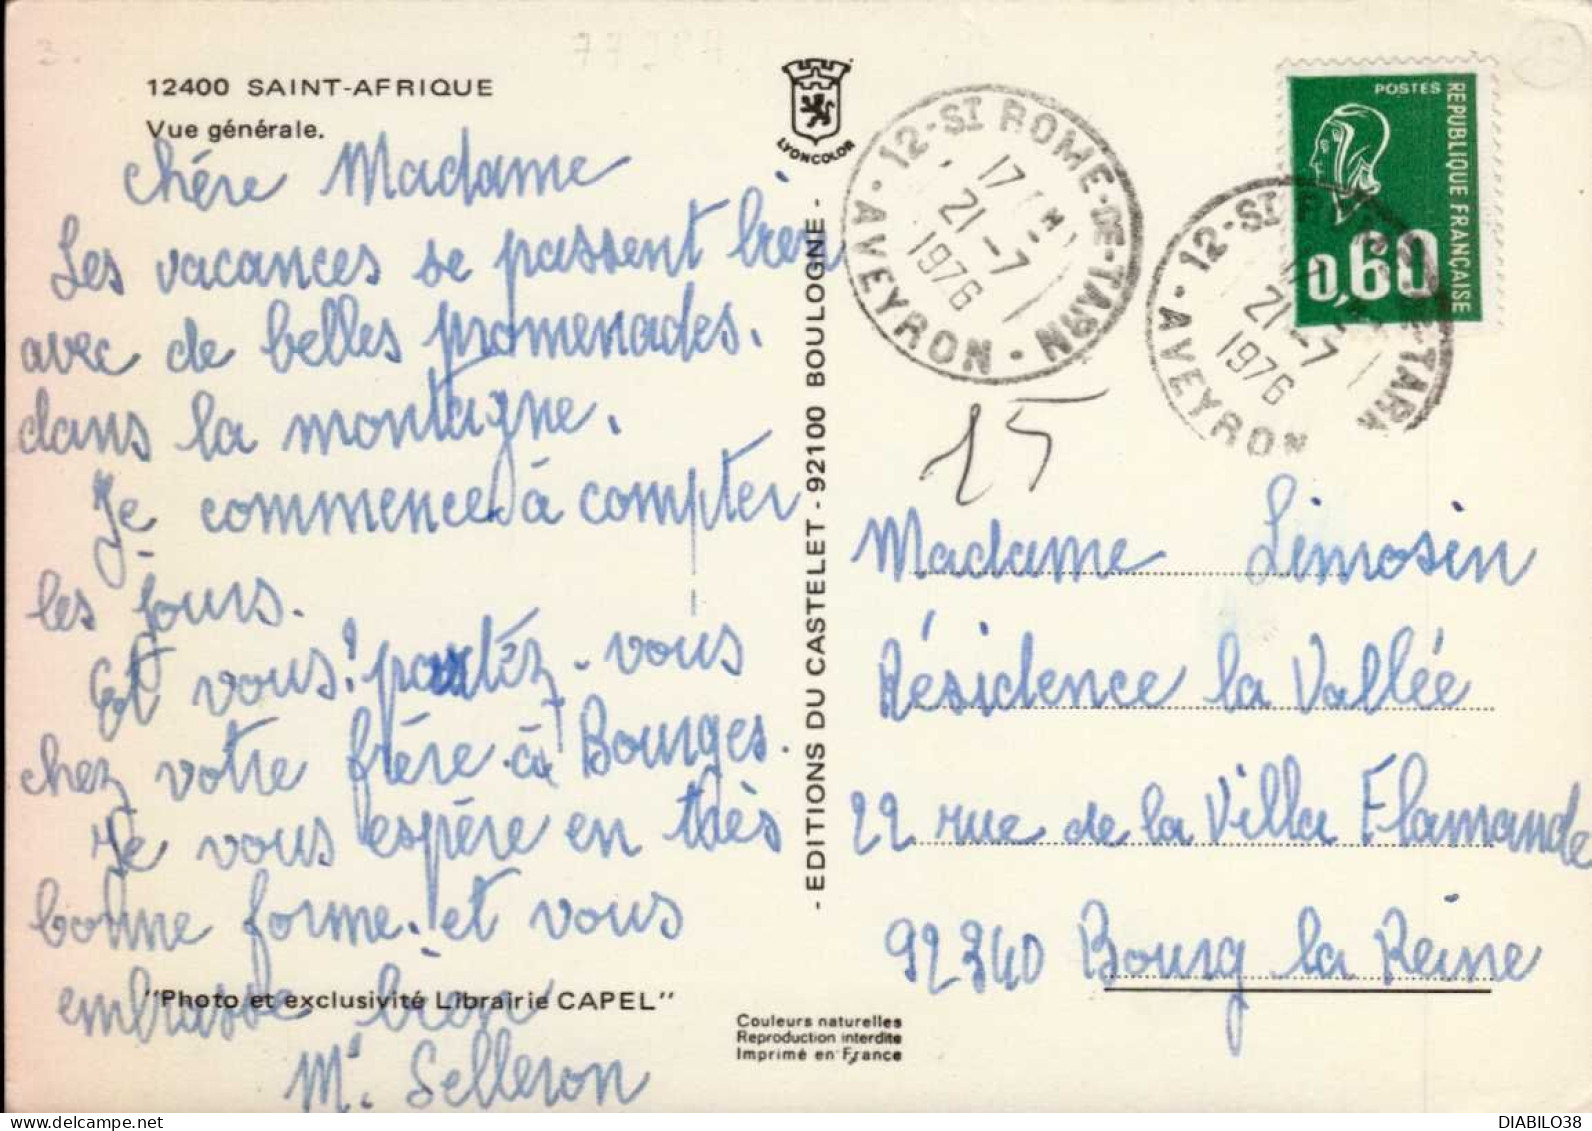 12400 SAINT-AFRIQUE
Vue générale.
chére Madame
Les vacances se passent bien
avec de belles promenades.
dans la montagne.
Je commence à compter
les jours.
Et vous! partéz-vous
chez votre frére à Bourges.
Je vous espére en très
bonne forme. et vous
embrasse bien
"Photo et exclusivité Librairie CAPEL"
M. Selleron
LYONCOLOR
- EDITIONS DU CASTELET - 92100 BOULOGNE -
Couleurs naturelles
Reproduction interdite
Imprimé en France
12-ST ROME-DE-TARN
17 H
21-7
1976
AVEYRON
12-ST
21-7
1976
AVEYRON
POSTES
REPUBLIQUE FRANÇAISE
0,60
15
Madame Limosin
Résidence la Vallée
22 rue de la Villa Flamande
92340 Bourg la Reine
DIABILO38